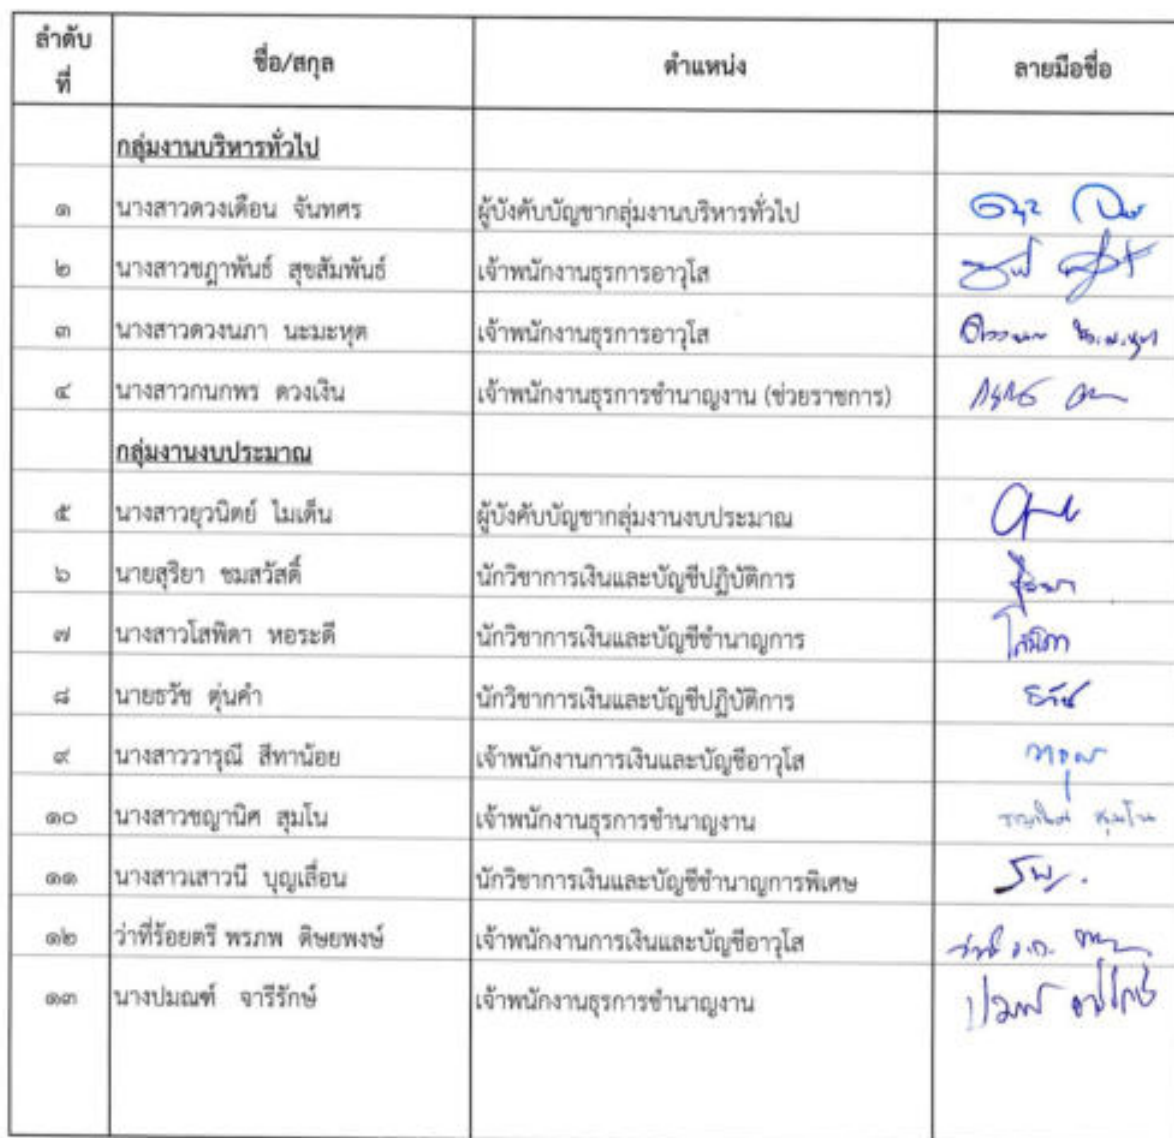 ลำดับที่ ชื่อ/สกุล ตำแหน่ง ลายมือชื่อ
กลุ่มงานบริหารทั่วไป
๑ นางสาวดวงเดือน จันทศร ผู้บังคับบัญชากลุ่มงานบริหารทั่วไป
๒ นางสาวชฎาพันธ์ สุขสัมพันธ์ เจ้าพนักงานธุรการอาวุโส
๓ นางสาวดวงนภา นะมะหุต เจ้าพนักงานธุรการอาวุโส
๔ นางสาวกนกพร ดวงเงิน เจ้าพนักงานธุรการชำนาญงาน (ช่วยราชการ)
กลุ่มงานงบประมาณ
๕ นางสาวยุวนิตย์ ไมเด็น ผู้บังคับบัญชากลุ่มงานงบประมาณ
๖ นายสุริยา ชมสวัสดิ์ นักวิชาการเงินและบัญชีปฏิบัติการ
๗ นางสาวโสพิดา หอระดี นักวิชาการเงินและบัญชีชำนาญการ โสพิดา
๘ นายธวัช ตุ่นคำ นักวิชาการเงินและบัญชีปฏิบัติการ ธวัช
๙ นางสาววารุณี สีทาน้อย เจ้าพนักงานการเงินและบัญชีอาวุโส
๑๐ นางสาวชญานิศ สุมโน เจ้าพนักงานธุรการชำนาญงาน ชญานิศ สุมโน
๑๑ นางสาวเสาวนี บุญเลื่อน นักวิชาการเงินและบัญชีชำนาญการพิเศษ
๑๒ ว่าที่ร้อยตรี พรภพ ดิษยพงษ์ เจ้าพนักงานการเงินและบัญชีอาวุโส
๑๓ นางปมณฑ์ จารีรักษ์ เจ้าพนักงานธุรการชำนาญงาน ปมณฑ์ จารีรักษ์